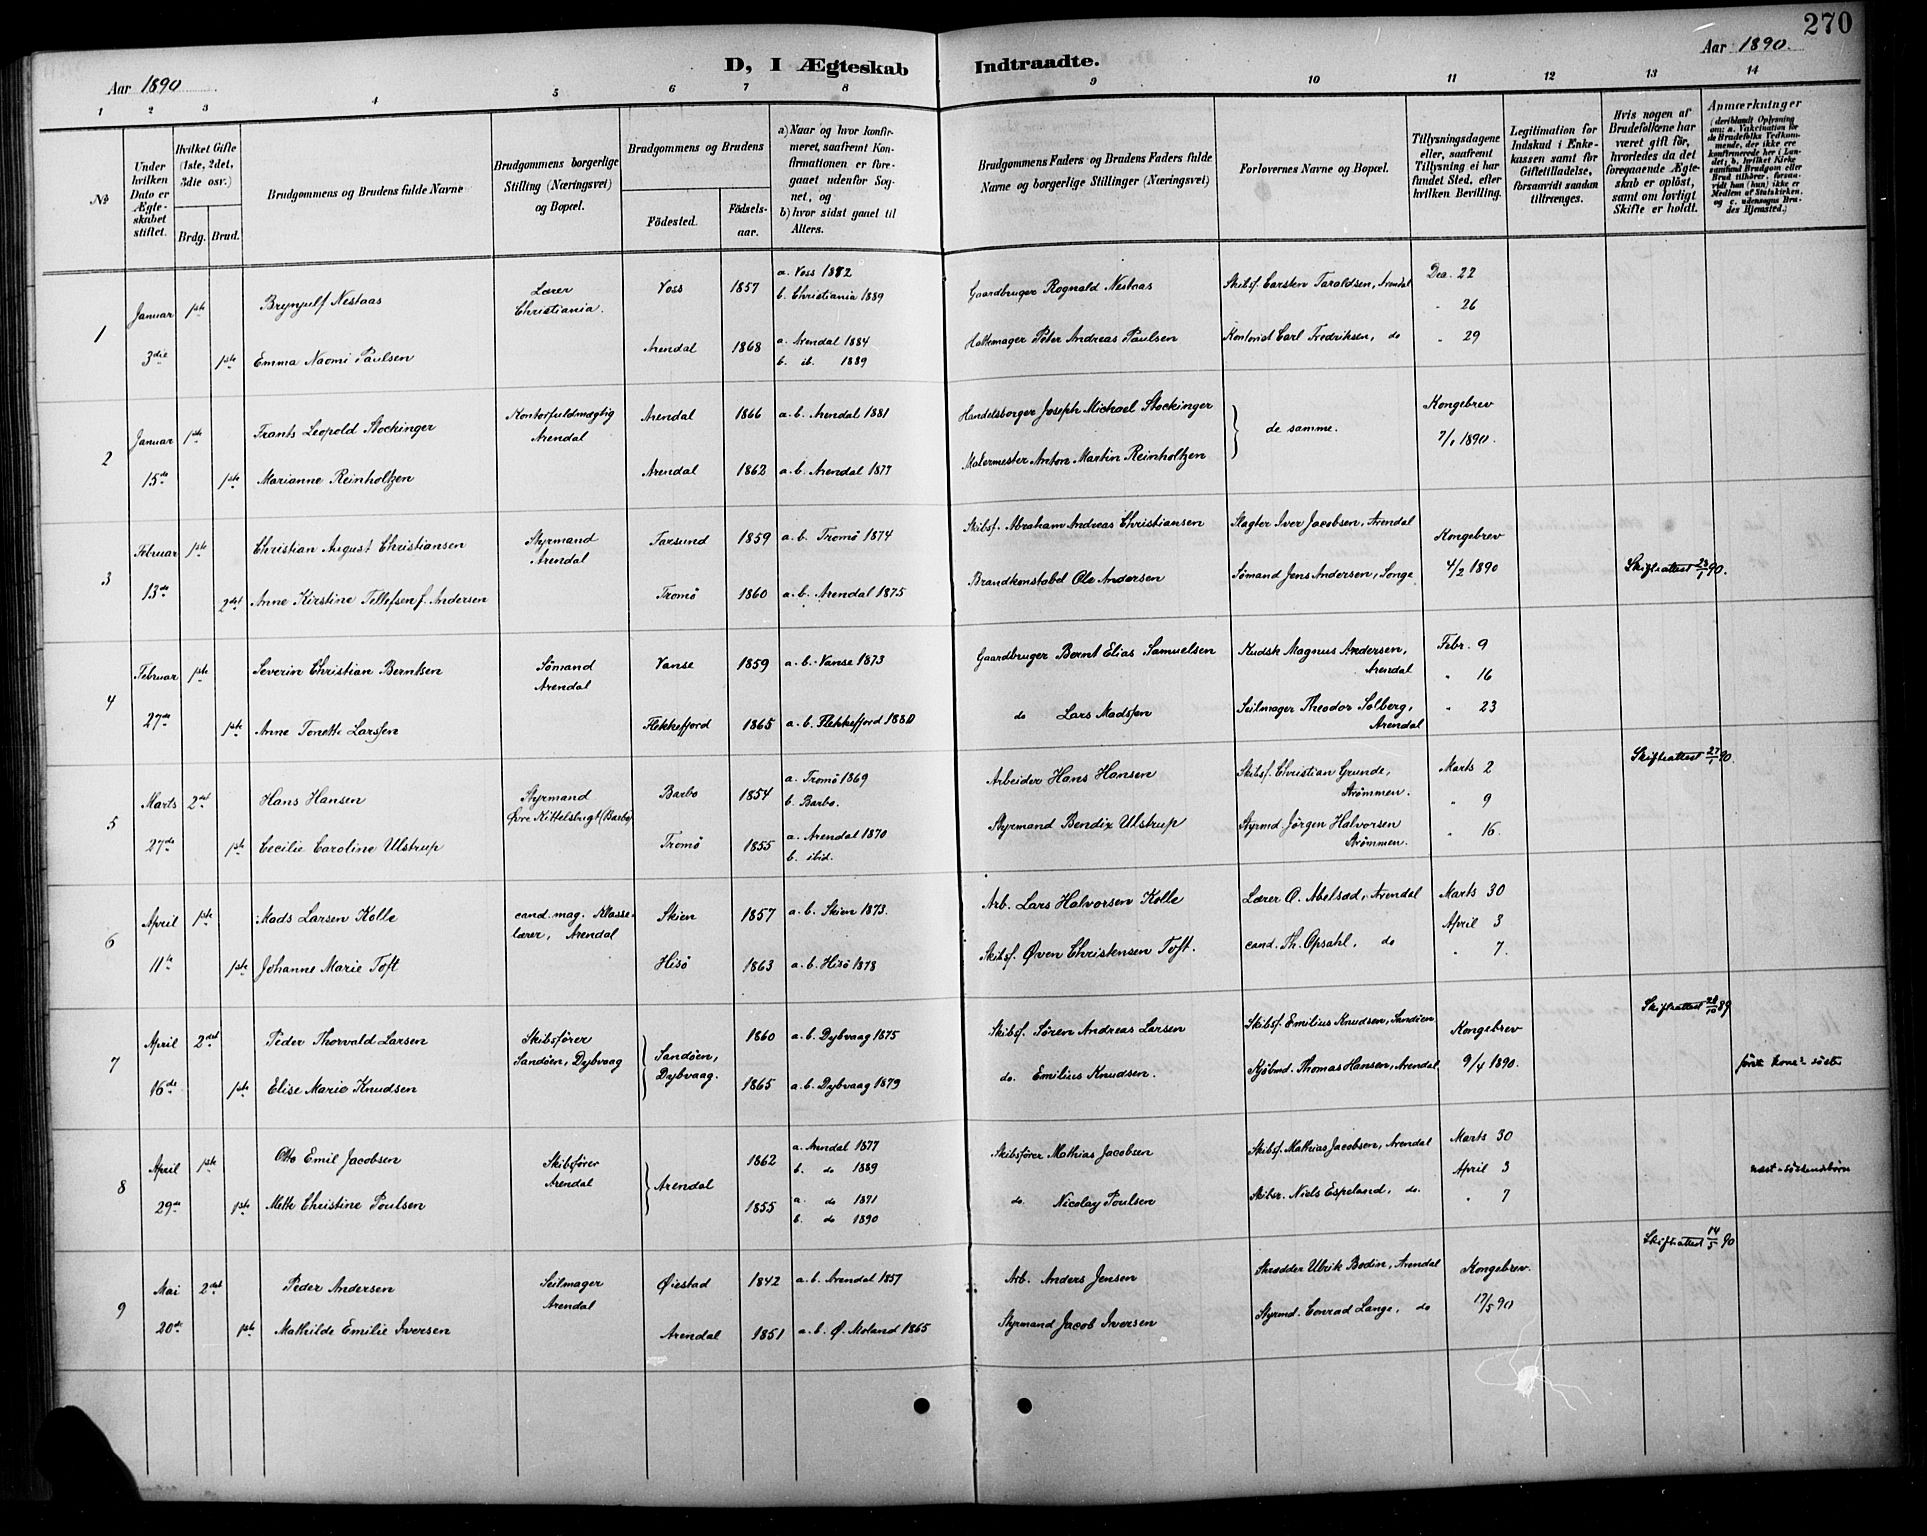 270
Aar 1890.
D, I Ægteskab Indtraadte.
Aar 1890.
1 2 3 4 5 6 7 8 9 10 11 12 13 14
No
Under hvilken Dato er Ægteskabet stiftet.
Hvilket Gifte (1ste, 2det, 3die osv.)
Brdg. Brud.
Brudgommens og Brudens fulde Navne
Brudgommens borgerlige Stilling (Næringsvei) og Bopæl.
Brudgommens og Brudens
Fødested. Fødselsaar.
a) Naar og hvor konfirmeret, saafremt Konfirmationen er foregaaet udenfor Sognet, og
b) hvor sidst gaaet til Alters.
Brudgommens Faders og Brudens Faders fulde Navne og borgerlige Stillinger (Næringsvei)
Forlovernes Navne og Bopæl.
Tillysningsdagene eller, saafremt Tillysning ei har fundet Sted, efter hvilken Bevilling.
Legitimation for Indskud i Enkekassen samt for Giftetilladelse, forsaavidt saadan tiltrænges.
Hvis nogen af Brudefolkene har været gift før, hvorledes da det foregaaende Ægteskab er opløst, samt om lovligt Skifte er holdt.
Anmærkninger (deriblandt Oplysning om: a. Vakcination for de Brudefolks Vedkommende, der ikke ere konfirmerede her i Landet; b. hvilket Kirkesamfund Brudgom eller Brud tilhører, forsaavidt han (hun) ikke er Medlem af Statskirken, og c. udensogns Brudes Hjemsted.)
1 Januar 1ste Brynjulf Nestaas Lærer Christiania. Voss 1857 a. Voss 1872 b. Christiania 1889 Gaardbruger Rognald Nestaas Skibsf. Carsten Taraldsen, Arendal Dec. 22 " 26
3die 1ste Emma Naomi Paulsen Arendal 1868 a. Arendal 1884 b. ib. 1889 Peter Andreas Paulsen Kontorist Carl Fredriksen, do " 29
2 Januar 1ste Frants Leopold Stockinger Kontorfuldmægtig Arendal Arendal 1866 a.b. Arendal 1881 Handelsborger Joseph Michael Stockinger de samme. Kongebrev 7/1 1890.
15de 1ste Marianne Reinholtzen Arendal 1862 a.b. Arendal 1877 Malermester Anton Martin Reinholtzen
3 Februar 1ste Christian August Christiansen Styrmand Arendal Farsund 1859 a.b. Tromø 1874 Skibsf. Abraham Andreas Christiansen Slagter Iver Jacobsen, Arendal Kongebrev 4/2 1890 Skifteattest 23/1 90.
13de 2det Anne Kirstine Tellefsen f. Andersen Tromø 1860 a.b. Arendal 1875 Brandkonstabel Ole Andersen Sømand Jens Andersen, Songe
4 Februar 1ste Severin Christian Berntsen Sømand Arendal Vanse 1859 a.b. Vanse 1873 Gaardbruger Bernt Elias Samuelsen Kudsk Magnus Andersen, Arendal Febr. 9 " 16
27de 1ste Anne Tonette Larssen Flekkefjord 1865 a.b. Flekkefjord 1880 do Lars Madssen Seilmager Theodor Solberg, Arendal " 23
5 Marts 2det Hans Hansen Styrmand Øvre Kittelsbugt (Barbo) Barbo 1854 a. Tromø 1869 b. Barbo. Arbeider Hans Hansen Skibsf. Christian Grunde, Strømmen. Marts 2 " 9 Skifteattest 27/1 90.
27de 1ste Cecilie Caroline Ulstrup Tromø 1855 a. Arendal 1870 b. ibid. Styrmand Bendix Ulstrup Styrmd. Jørgen Halvorsen Strømmen. " 16.
6 April 1ste Mads Larsen Kolle cand. mag. Klasselærer, Arendal Skien 1857 a.b. Skien 1873. Arb. Lars Halvorsen Kolle Lærer O. Abelsæd, Arendal Marts 30 April 3
11te 1ste Johanne Marie Toft Hisø 1863 a.b. Hisø 1878 Skibsf. Øven Christensen Toft. cand. Th. Opsahl, do " 7.
7 April 2det Peder Thorvald Larsen Skibsfører Sandøen, Dybvaag Sandøen, Dybvaag. 1860 a.b. Dybvaag 1875 Skibsf. Søren Andreas Larsen Skibsf. Emilius Knudsen, Sandøen Kongebrev 9/4 1890. Skifteattest 28/10 89
16de 1ste Elise Marie Knudsen 1865 a.b. Dybvaag 1879 do. Emilius Knudsen. Kjøbmd. Thomas Hansen, Arendal første kones søster
8 April 1ste Otto Emil Jacobsen Skibsfører Arendal Arendal 1862 a. Arendal 1877 b. do 1889 Skibsfører Mathias Jacobsen Skibsf. Mathias Jacobsen, Arendal Marts 30 April 3 næst-søskendebørn
29de 1ste Mette Christine Poulsen 1855 a. do 1871 b. do 1890 do. Nicolay Poulsen Skibsr. Niels Espeland, do. " 7
9 Mai 2det Peder Andersen Seilmager Arendal Øiestad 1842 a.b. Arendal 1857 Arb. Anders Jensen Skrædder Ulrik Bodin, Arendal Kongebrev. 17/5 90 Skifteattest 14/5 90
20de 1ste Mathilde Emilie Iversen Arendal 1851 a.b. Ø. Moland 1865 Styrmand Jacob Iversen Styrmd. Conrad Lange, do